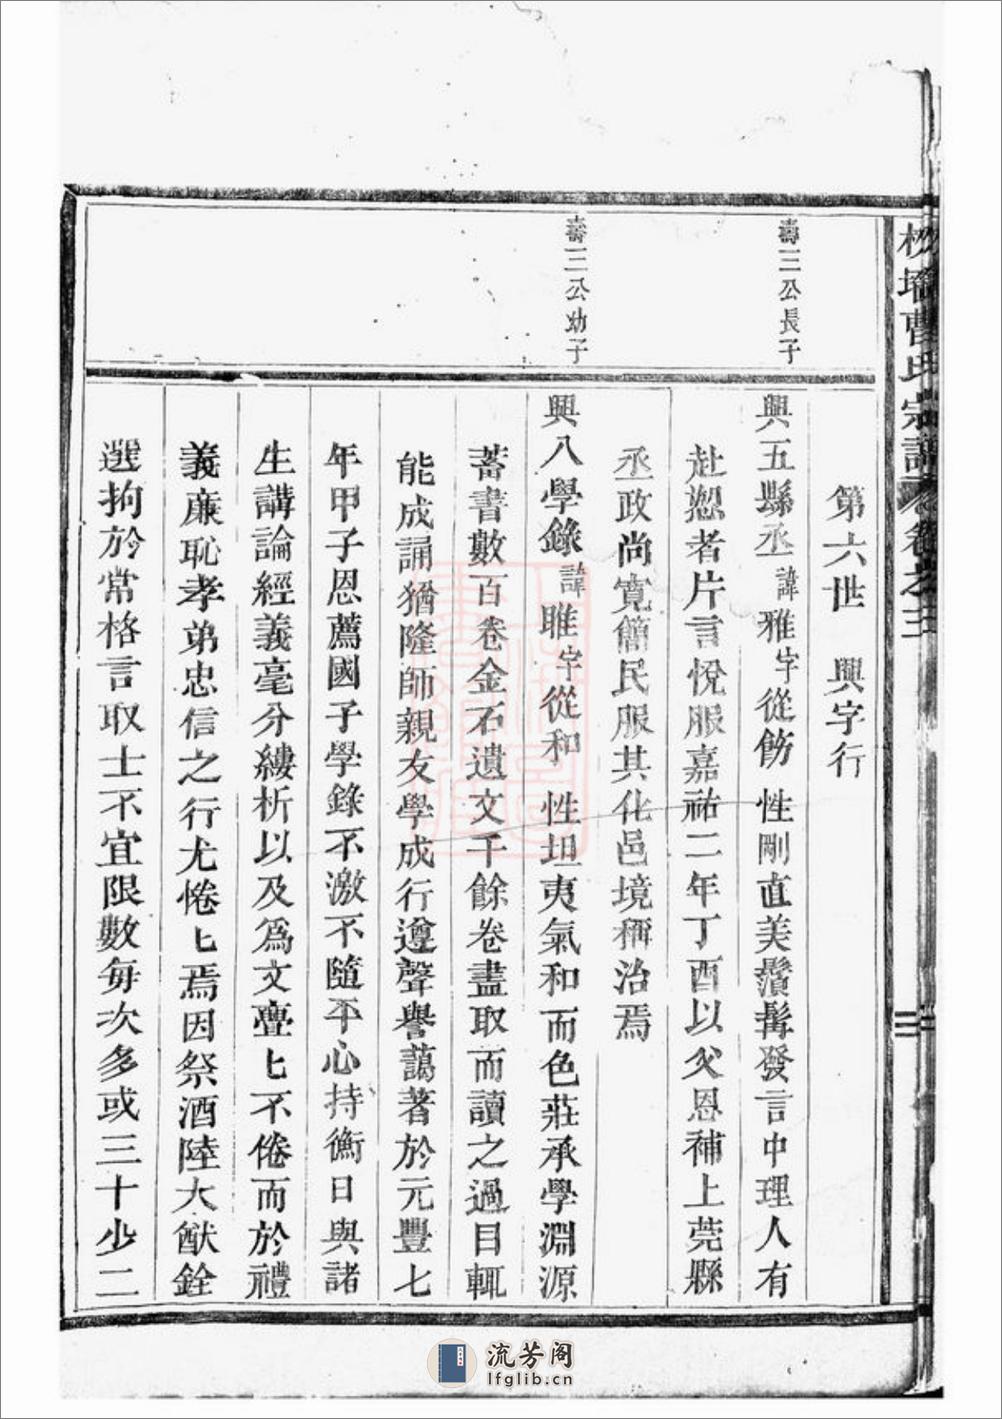 曹氏宗譜 卷之三
三
第六世 興字行
壽三公長子
興五縣丞諱雅字從飭 性剛直美鬚髯發言中理人有
赴愬者片言悅服嘉祐二年丁酉以父恩補上莞縣
丞政尚寬簡民服其化邑境稱治焉
壽三公幼子
興八學錄諱雎字從和 性坦夷氣和而色莊承學淵源
蓄書數百卷金石遺文千餘卷盡取而讀之過目輒
能成誦猶隆師親友學成行遵聲譽藹著於元豐七
年甲子恩薦國子學錄不激不隨平心持衡日與諸
生講論經義毫分縷析以及為文亹匕不倦而於禮
義廉恥孝弟忠信之行尤惓匕焉因祭酒陸大猷銓
選拘於常格言取士不宜限數每次多或三十少二
流芳阁
lfglib.cn